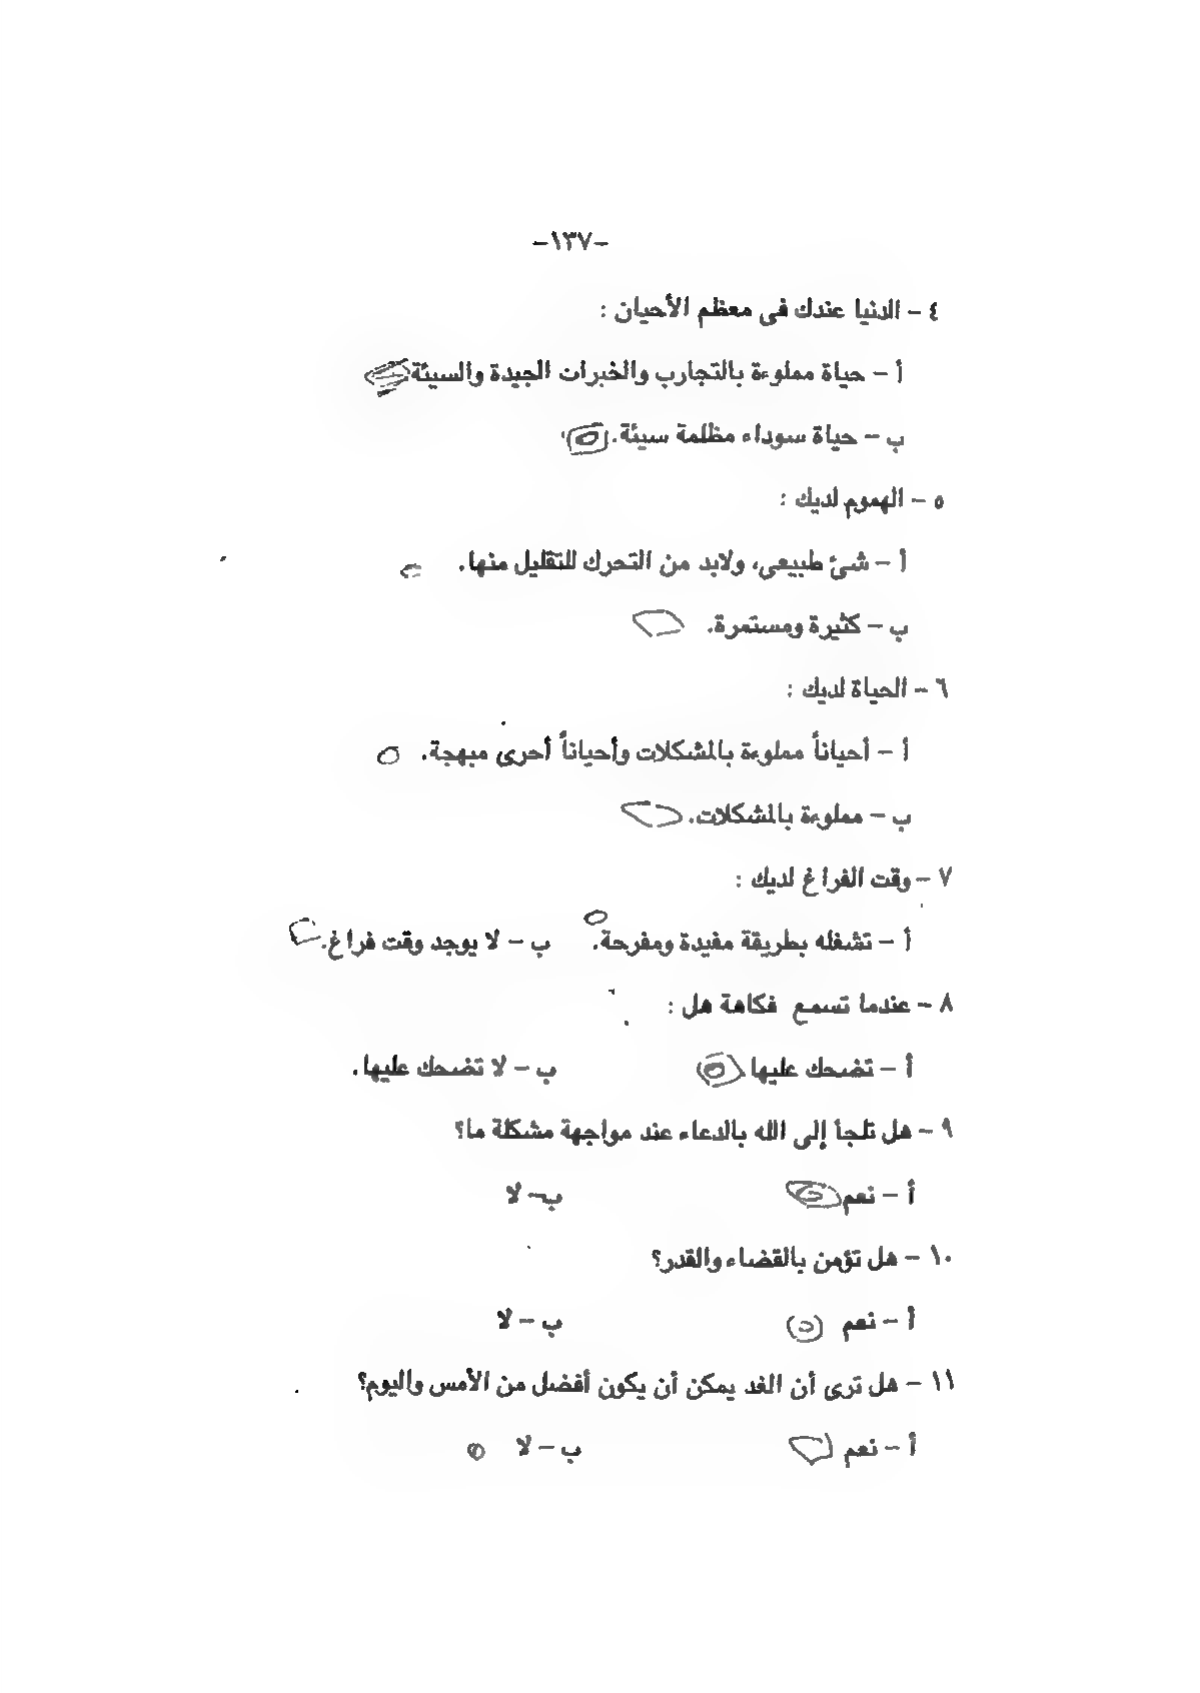 -١٣٧-
٤ - الدنيا عندك فى معظم الأحيان :
أ - حياة مملوءة بالتجارب والخبرات الجيدة والسيئة
ب - حياة سوداء مظلمة سيئة.
٥ - الهموم لديك :
أ - شئ طبيعى، ولابد من التحرك للتقليل منها.
ب - كثيرة ومستمرة.
٦ - الحياة لديك :
أ - أحياناً مملوءة بالمشكلات وأحياناً أحرى مبهجة.
ب - مملوءة بالمشكلات.
٧ - وقت الفراغ لديك :
أ - تشغله بطريقة مفيدة ومفرحة. ب - لا يوجد وقت فراغ.
٨ - عندما تسمع فكاهة هل :
أ - تضحك عليها ب - لا تضحك عليها.
٩ - هل تلجأ إلى الله بالدعاء عند مواجهة مشكلة ما؟
أ - نعم ب- لا
١٠ - هل تؤمن بالقضاء والقدر؟
أ - نعم ب - لا
١١ - هل ترى أن الغد يمكن أن يكون أفضل من الأمس واليوم؟
أ - نعم ب - لا